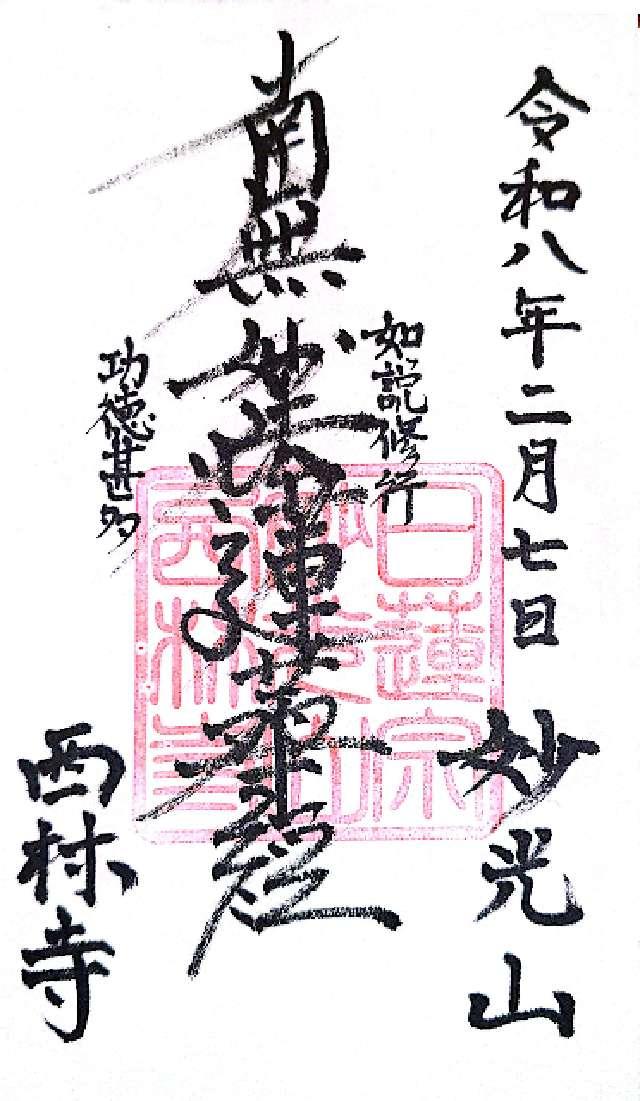 令和八年二月七日
妙光山
如説修行
南無妙法蓮華経
功徳甚多
西林寺
日蓮宗
妙光山
西林寺